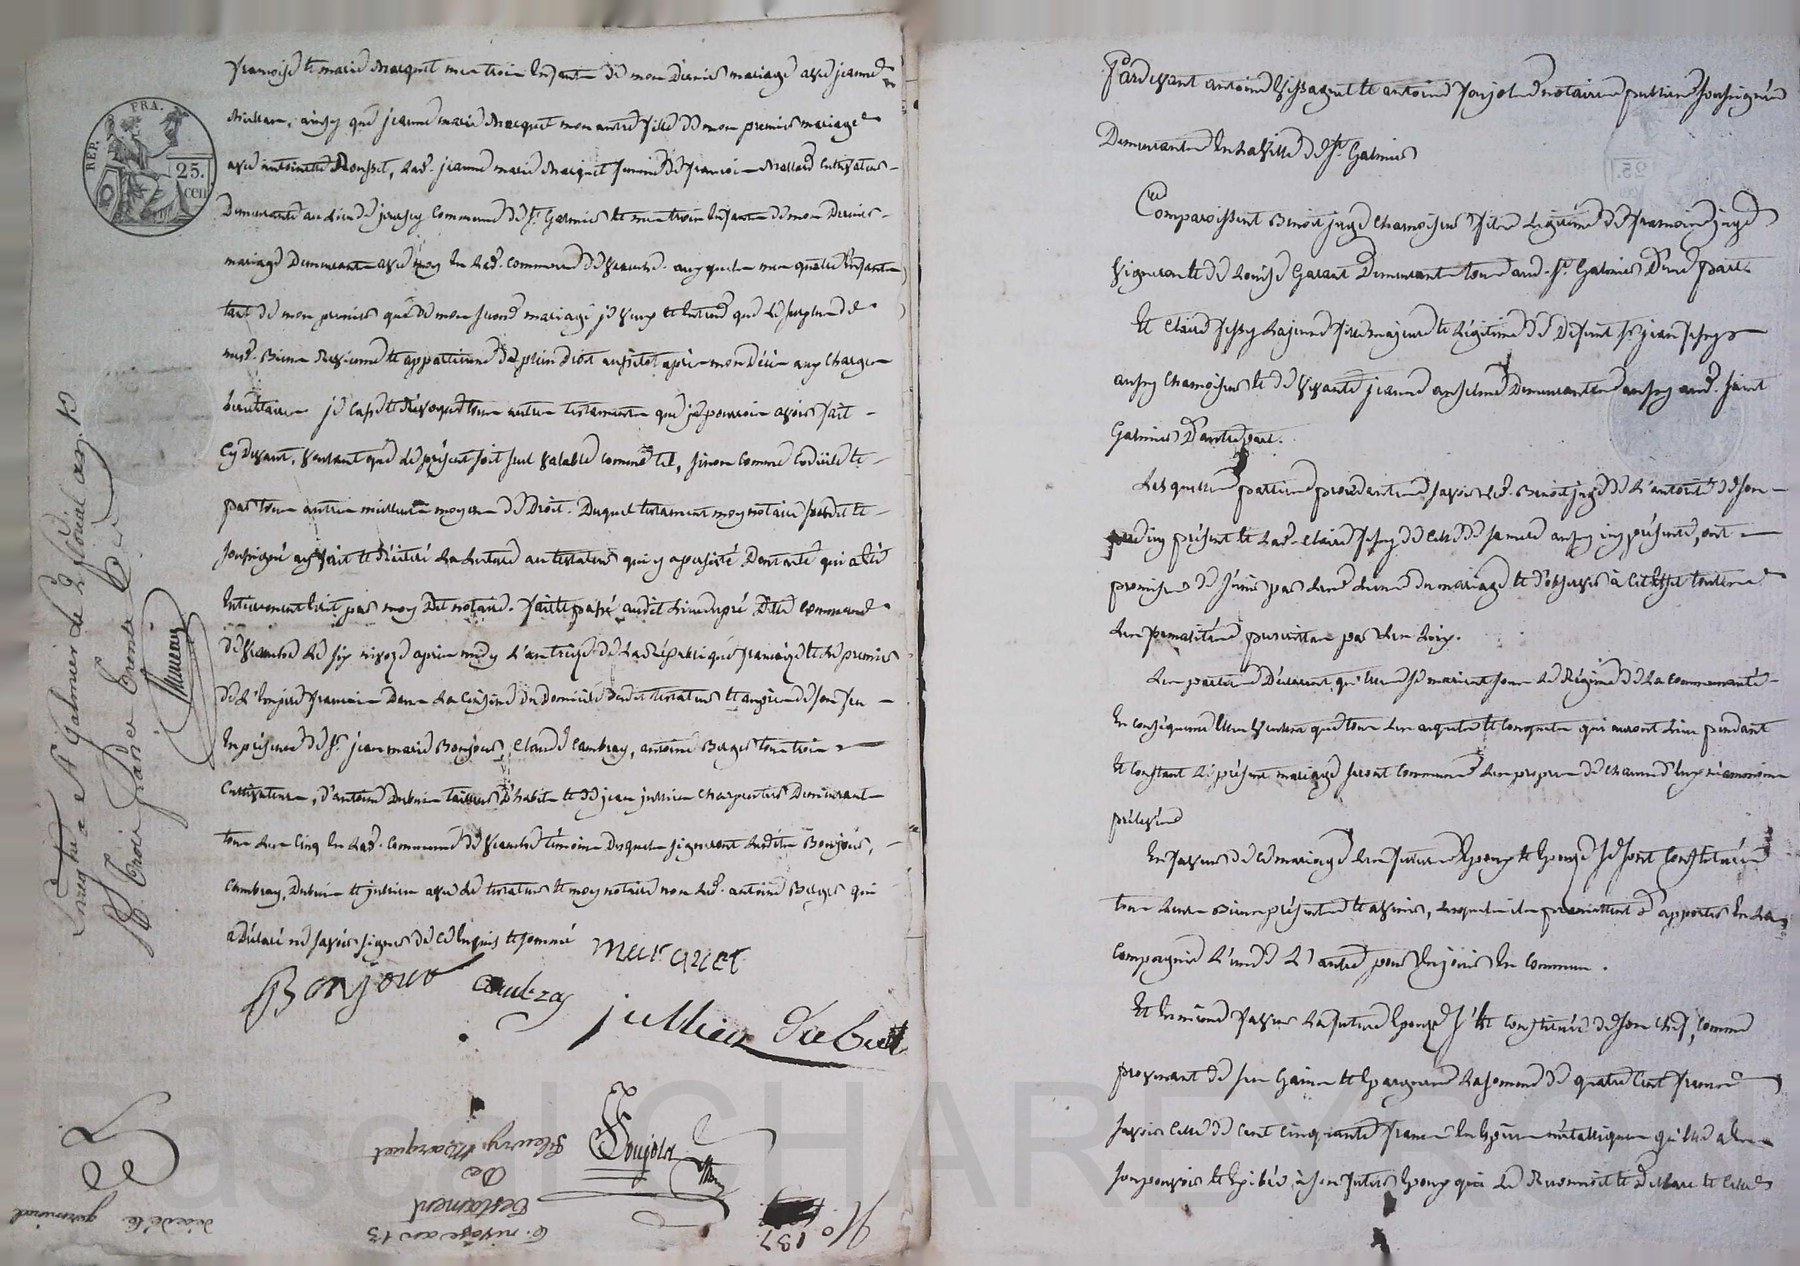 françoise et marie Marquet mes trois enfants de mon dernier mariage avec jeanne
ainsy que jeanne marie Marquet mon autre fille de mon premier mariage
avec antoinette Rousset, lad. jeanne marie Marquet femme de françois cultivateur
Demeurants au lieu de commune de St Galmier et mes trois enfants de mon dernier
mariage Demeurants avec moy en lad. commune de auxquels mes quatre enfants
tant de mon premier que de mon second mariage je veux et entend que le surplus de
mesd. Biens et appartienne de plein droit aussitot après mon décès aux charges
héréditaires je casse et révoque tous autres testaments que je pourrois avoir fait
cy devant, voulant que le présent soit seul valable comme tel, sinon comme codicile et
par tous autres meilleurs moyens de Droit. Duquel testament moy notaire susdit et
soussigné ay fait et réitéré la lecture au testateur qui y a persisté Dont acte qui a été
entièrement écrit par moy dit notaire. fait et passé audit lieu commune
de le six nivoze après midy l'an treize de la République françaize et le premier
de l'Empire français Dans la cuisine du Domicile dudit testateur et auprès de son feu
En présence de Sr. jean marie Bonjour, Claude Cambray, antoine Berger tous trois
Cultivateurs, d'antoine Dubuis tailleur d'habits et de jean jullien charpentier Demeurant
tous les cinq en lad. Commune de témoins Desquels signeront lesdits Bonjour,
Cambray, Dubuis et jullien avec le testateur et moy notaire non led. antoine Berger qui
a déclaré ne savoir signer de ce enquis et sommé
Marquet
Bonjour Cambray
jullien Dubuis
Poujola
No 137
6. nivoze an 13
testament
De
Fleury Marquet
décédé le
germinal
Enregistré à St Galmier le floréal an 13
trois francs trente
REP. FRA.
25.
cen.
Pardevant antoine et antoine notaires publics soussignés
Demeurants en la ville de St. Galmier
Comparoissent Benoit juge chamoiseur fils Légitime de françois juge
vigneron et de Louise Garant Demeurants tous aud. St. Galmier D'une part
Et Claire fille majeure et légitime de Défunt Sr. jean
aussy chamoiseur et de vivante jeanne anselme Demeurantes aussy aud. Saint
Galmier D'autre part.
Lesquelles parties procédantes savoir led. Benoit juge de l'autorité de son
père icy présent et lad. Claire de celle de sa mère aussy icy présente, ont
promis de s'unir par les liens du mariage et d'observer à cet effet toutes
les formalités prescrittes par les loix.
Les parties Déclarent qu'elles se marient sous le Régime de la communauté
En conséquence elles veulent que tous les acquets et conquets qui auront lieu pendant
et constant le présent mariage seront communs les propres de chacun d'eux néanmoins
prélevés
En faveur de ce mariage les futurs époux et épouse se sont constitués
tous leurs Biens présents et avenir, lesquels ils promettent d'apporter en la
compagnie l'un de l'autre pour en jouir en commun.
Et En même faveur la future épouse s'est constituée de son chef, comme
provenant de ses gains et épargnes la somme de quatre cent francs
savoir celle de cent cinquante francs en espèces métalliques qu'elle a en
son pouvoir et exibée à son futur époux qui le reconnoit et déclare et celle
Pascal CHAREYRON